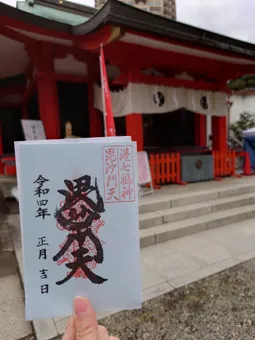 港七福神
毘沙門天
毘沙門天
令和四年
正月吉日